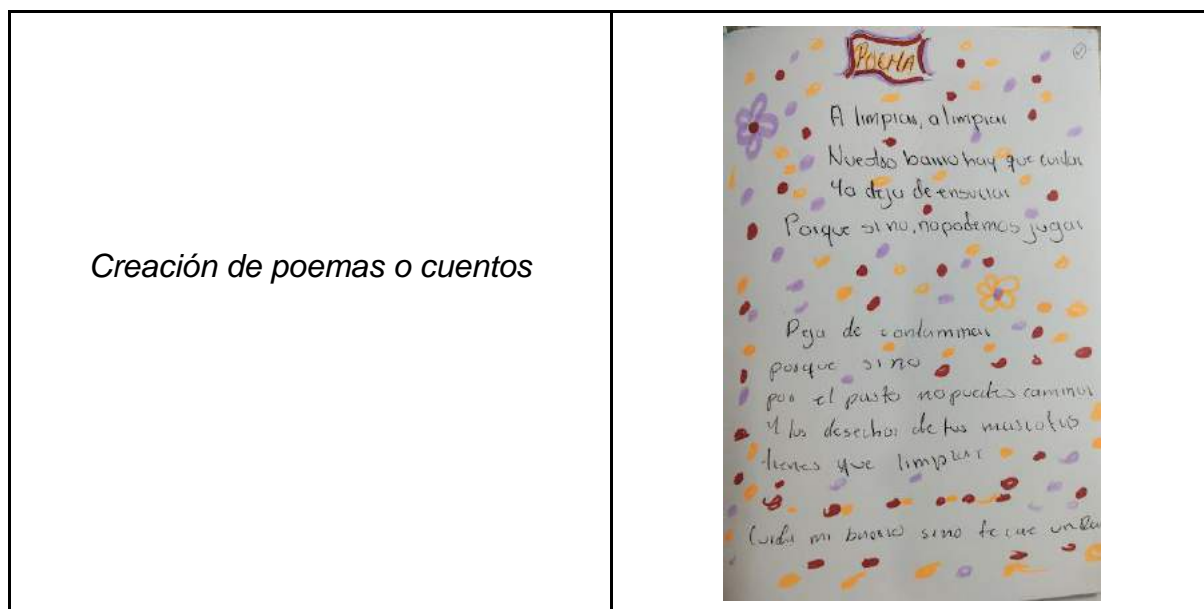 Creación de poemas o cuentos
POEMA
A limpiar, a limpiar
Nuestro barrio hay que cuidar
Ya deja de ensuciar
Porque si no, no podemos jugar
Deja de contaminar
porque sino
por el pasto no puedes caminar
Y los desechos de tus mascotas
tienes que limpiar
Cuida mi barrio sino te cae un